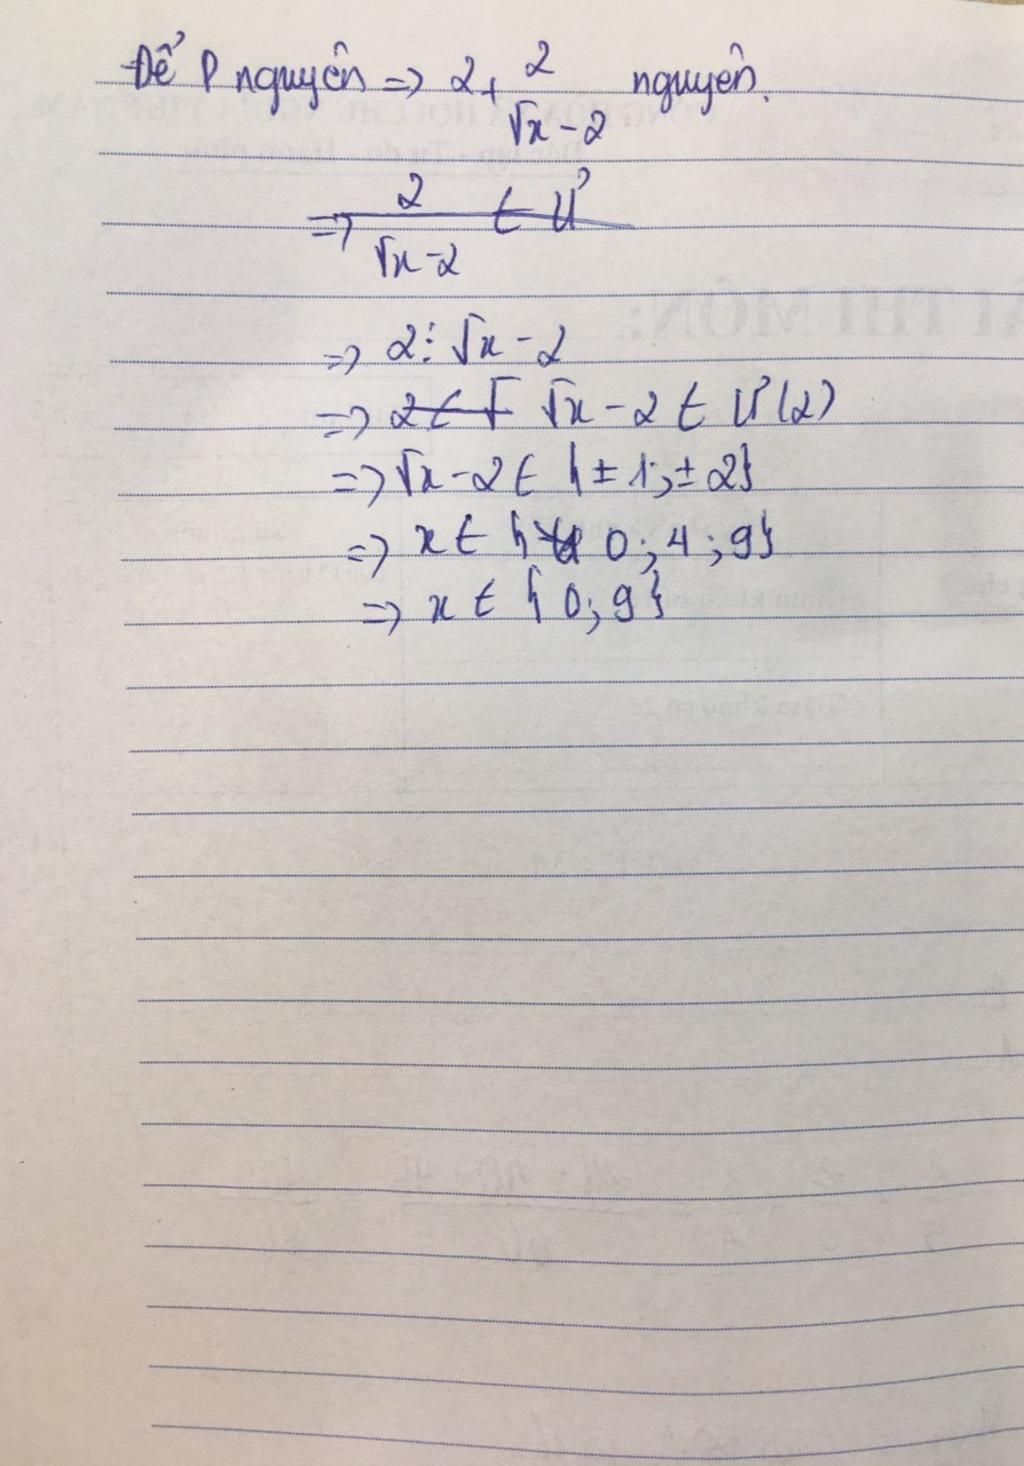 Để P nguyên => 2 + 2/(√x - 2) nguyên.
=> 2/(√x - 2) ∈ Ư
=> 2 ⋮ √x - 2
=> 2 ∈ √ √x - 2 ∈ Ư(2)
=> √x - 2 ∈ {±1; ±2}
=> x ∈ { 0; 4; 9}
=> x ∈ {0; 9}